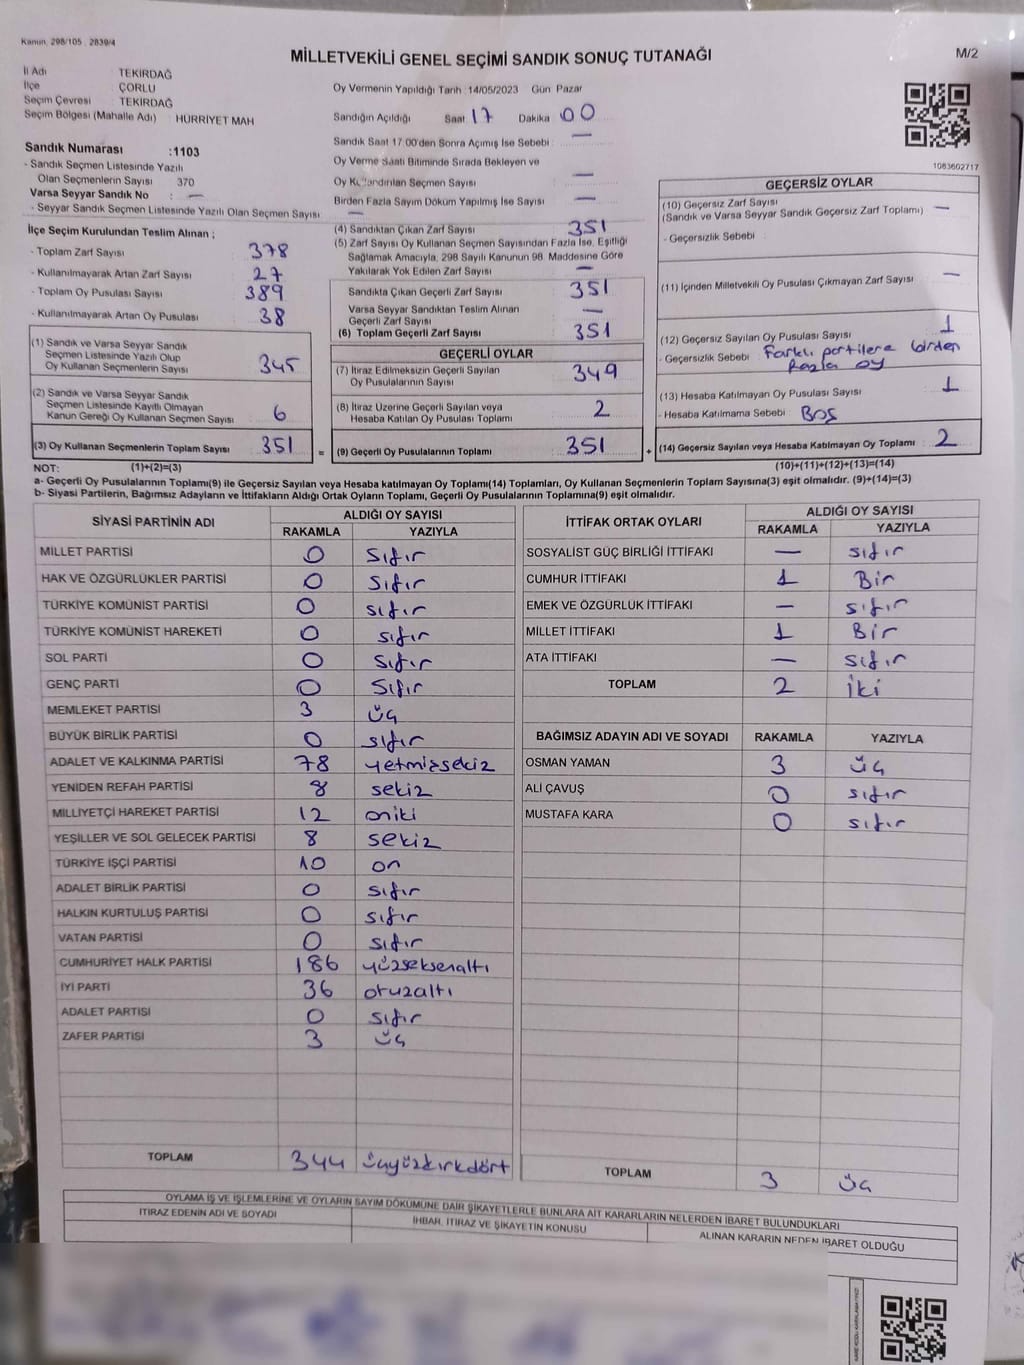 Kanun 298/105 , 2839/4
MİLLETVEKİLİ GENEL SEÇİMİ SANDIK SONUÇ TUTANAĞI
M/2
İl Adı : TEKİRDAĞ
İlçe : ÇORLU
Seçim Çevresi : TEKİRDAĞ
Seçim Bölgesi (Mahalle Adı) : HÜRRİYET MAH
Oy Vermenin Yapıldığı Tarih :14/05/2023 Gün Pazar
Sandığın Açıldığı Saat 17 Dakika 00
Sandık Saat 17:00'den Sonra Açılmış İse Sebebi : —
Oy Verme Saati Bitiminde Sırada Bekleyen ve
Oy Kullandırılan Seçmen Sayısı —
Birden Fazla Sayım Döküm Yapılmış İse Sayısı —
1083602717
Sandık Numarası :1103
- Sandık Seçmen Listesinde Yazılı
Olan Seçmenlerin Sayısı 370
Varsa Seyyar Sandık No : —
- Seyyar Sandık Seçmen Listesinde Yazılı Olan Seçmen Sayısı —
İlçe Seçim Kurulundan Teslim Alınan ;
- Toplam Zarf Sayısı 378
- Kullanılmayarak Artan Zarf Sayısı 27
- Toplam Oy Pusulası Sayısı 389
- Kullanılmayarak Artan Oy Pusulası 38
(1) Sandık ve Varsa Seyyar Sandık
Seçmen Listesinde Yazılı Olup
Oy Kullanan Seçmenlerin Sayısı 345
(2) Sandık ve Varsa Seyyar Sandık
Seçmen Listesinde Kayıtlı Olmayan
Kanun Gereği Oy Kullanan Seçmen Sayısı 6
(3) Oy Kullanan Seçmenlerin Toplam Sayısı 351 =
(4) Sandıktan Çıkan Zarf Sayısı 351
(5) Zarf Sayısı Oy Kullanan Seçmen Sayısından Fazla İse, Eşitliği
Sağlamak Amacıyla, 298 Sayılı Kanunun 98. Maddesine Göre
Yakılarak Yok Edilen Zarf Sayısı —
Sandıkta Çıkan Geçerli Zarf Sayısı 351
Varsa Seyyar Sandıktan Teslim Alınan
Geçerli Zarf Sayısı —
(6) Toplam Geçerli Zarf Sayısı 351
GEÇERLİ OYLAR
(7) İtiraz Edilmeksizin Geçerli Sayılan
Oy Pusulalarının Sayısı 349
(8) İtiraz Üzerine Geçerli Sayılan veya
Hesaba Katılan Oy Pusulası Toplamı 2
(9) Geçerli Oy Pusulalarının Toplamı 351 +
GEÇERSİZ OYLAR
(10) Geçersiz Zarf Sayısı
(Sandık ve Varsa Seyyar Sandık Geçersiz Zarf Toplamı) —
- Geçersizlik Sebebi :
(11) İçinden Milletvekili Oy Pusulası Çıkmayan Zarf Sayısı —
(12) Geçersiz Sayılan Oy Pusulası Sayısı 1
- Geçersizlik Sebebi : Farklı partilere birden
fazla oy
(13) Hesaba Katılmayan Oy Pusulası Sayısı 1
- Hesaba Katılmama Sebebi : Boş
(14) Geçersiz Sayılan veya Hesaba Katılmayan Oy Toplamı : 2
NOT: (1)+(2)=(3)
(10)+(11)+(12)+(13)=(14)
a- Geçerli Oy Pusulalarının Toplamı(9) ile Geçersiz Sayılan veya Hesaba katılmayan Oy Toplamı(14) Toplamları, Oy Kullanan Seçmenlerin Toplam Sayısına(3) eşit olmalıdır. (9)+(14)=(3)
b- Siyasi Partilerin, Bağımsız Adayların ve İttifakların Aldığı Ortak Oyların Toplamı, Geçerli Oy Pusulalarının Toplamına(9) eşit olmalıdır.
SİYASİ PARTİNİN ADI
ALDIĞI OY SAYISI
RAKAMLA YAZIYLA
MİLLET PARTİSİ 0 Sıfır
HAK VE ÖZGÜRLÜKLER PARTİSİ 0 Sıfır
TÜRKİYE KOMÜNİST PARTİSİ 0 sıfır
TÜRKİYE KOMÜNİST HAREKETİ 0 sıfır
SOL PARTİ 0 Sıfır
GENÇ PARTİ 0 Sıfır
MEMLEKET PARTİSİ 3 üç
BÜYÜK BİRLİK PARTİSİ 0 sıfır
ADALET VE KALKINMA PARTİSİ 78 yetmişsekiz
YENİDEN REFAH PARTİSİ 8 sekiz
MİLLİYETÇİ HAREKET PARTİSİ 12 oniki
YEŞİLLER VE SOL GELECEK PARTİSİ 8 sekiz
TÜRKİYE İŞÇİ PARTİSİ 10 on
ADALET BİRLİK PARTİSİ 0 sıfır
HALKIN KURTULUŞ PARTİSİ 0 sıfır
VATAN PARTİSİ 0 sıfır
CUMHURİYET HALK PARTİSİ 186 yüzseksenaltı
İYİ PARTİ 36 otuzaltı
ADALET PARTİSİ 0 sıfır
ZAFER PARTİSİ 3 üç
TOPLAM 344 üçyüzkırkdört
İTTİFAK ORTAK OYLARI
ALDIĞI OY SAYISI
RAKAMLA YAZIYLA
SOSYALİST GÜÇ BİRLİĞİ İTTİFAKI — sıfır
CUMHUR İTTİFAKI 1 Bir
EMEK VE ÖZGÜRLÜK İTTİFAKI — sıfır
MİLLET İTTİFAKI 1 Bir
ATA İTTİFAKI — sıfır
TOPLAM 2 İki
BAĞIMSIZ ADAYIN ADI VE SOYADI RAKAMLA YAZIYLA
OSMAN YAMAN 3 üç
ALİ ÇAVUŞ 0 sıfır
MUSTAFA KARA 0 sıfır
TOPLAM 3 üç
OYLAMA İŞ VE İŞLEMLERİNE VE OYLARIN SAYIM DÖKÜMÜNE DAİR ŞİKAYETLERLE BUNLARA AİT KARARLARIN NELERDEN İBARET BULUNDUKLARI
İTİRAZ EDENİN ADI VE SOYADI
İHBAR, İTİRAZ VE ŞİKAYETİN KONUSU
ALINAN KARARIN NEDEN İBARET OLDUĞU